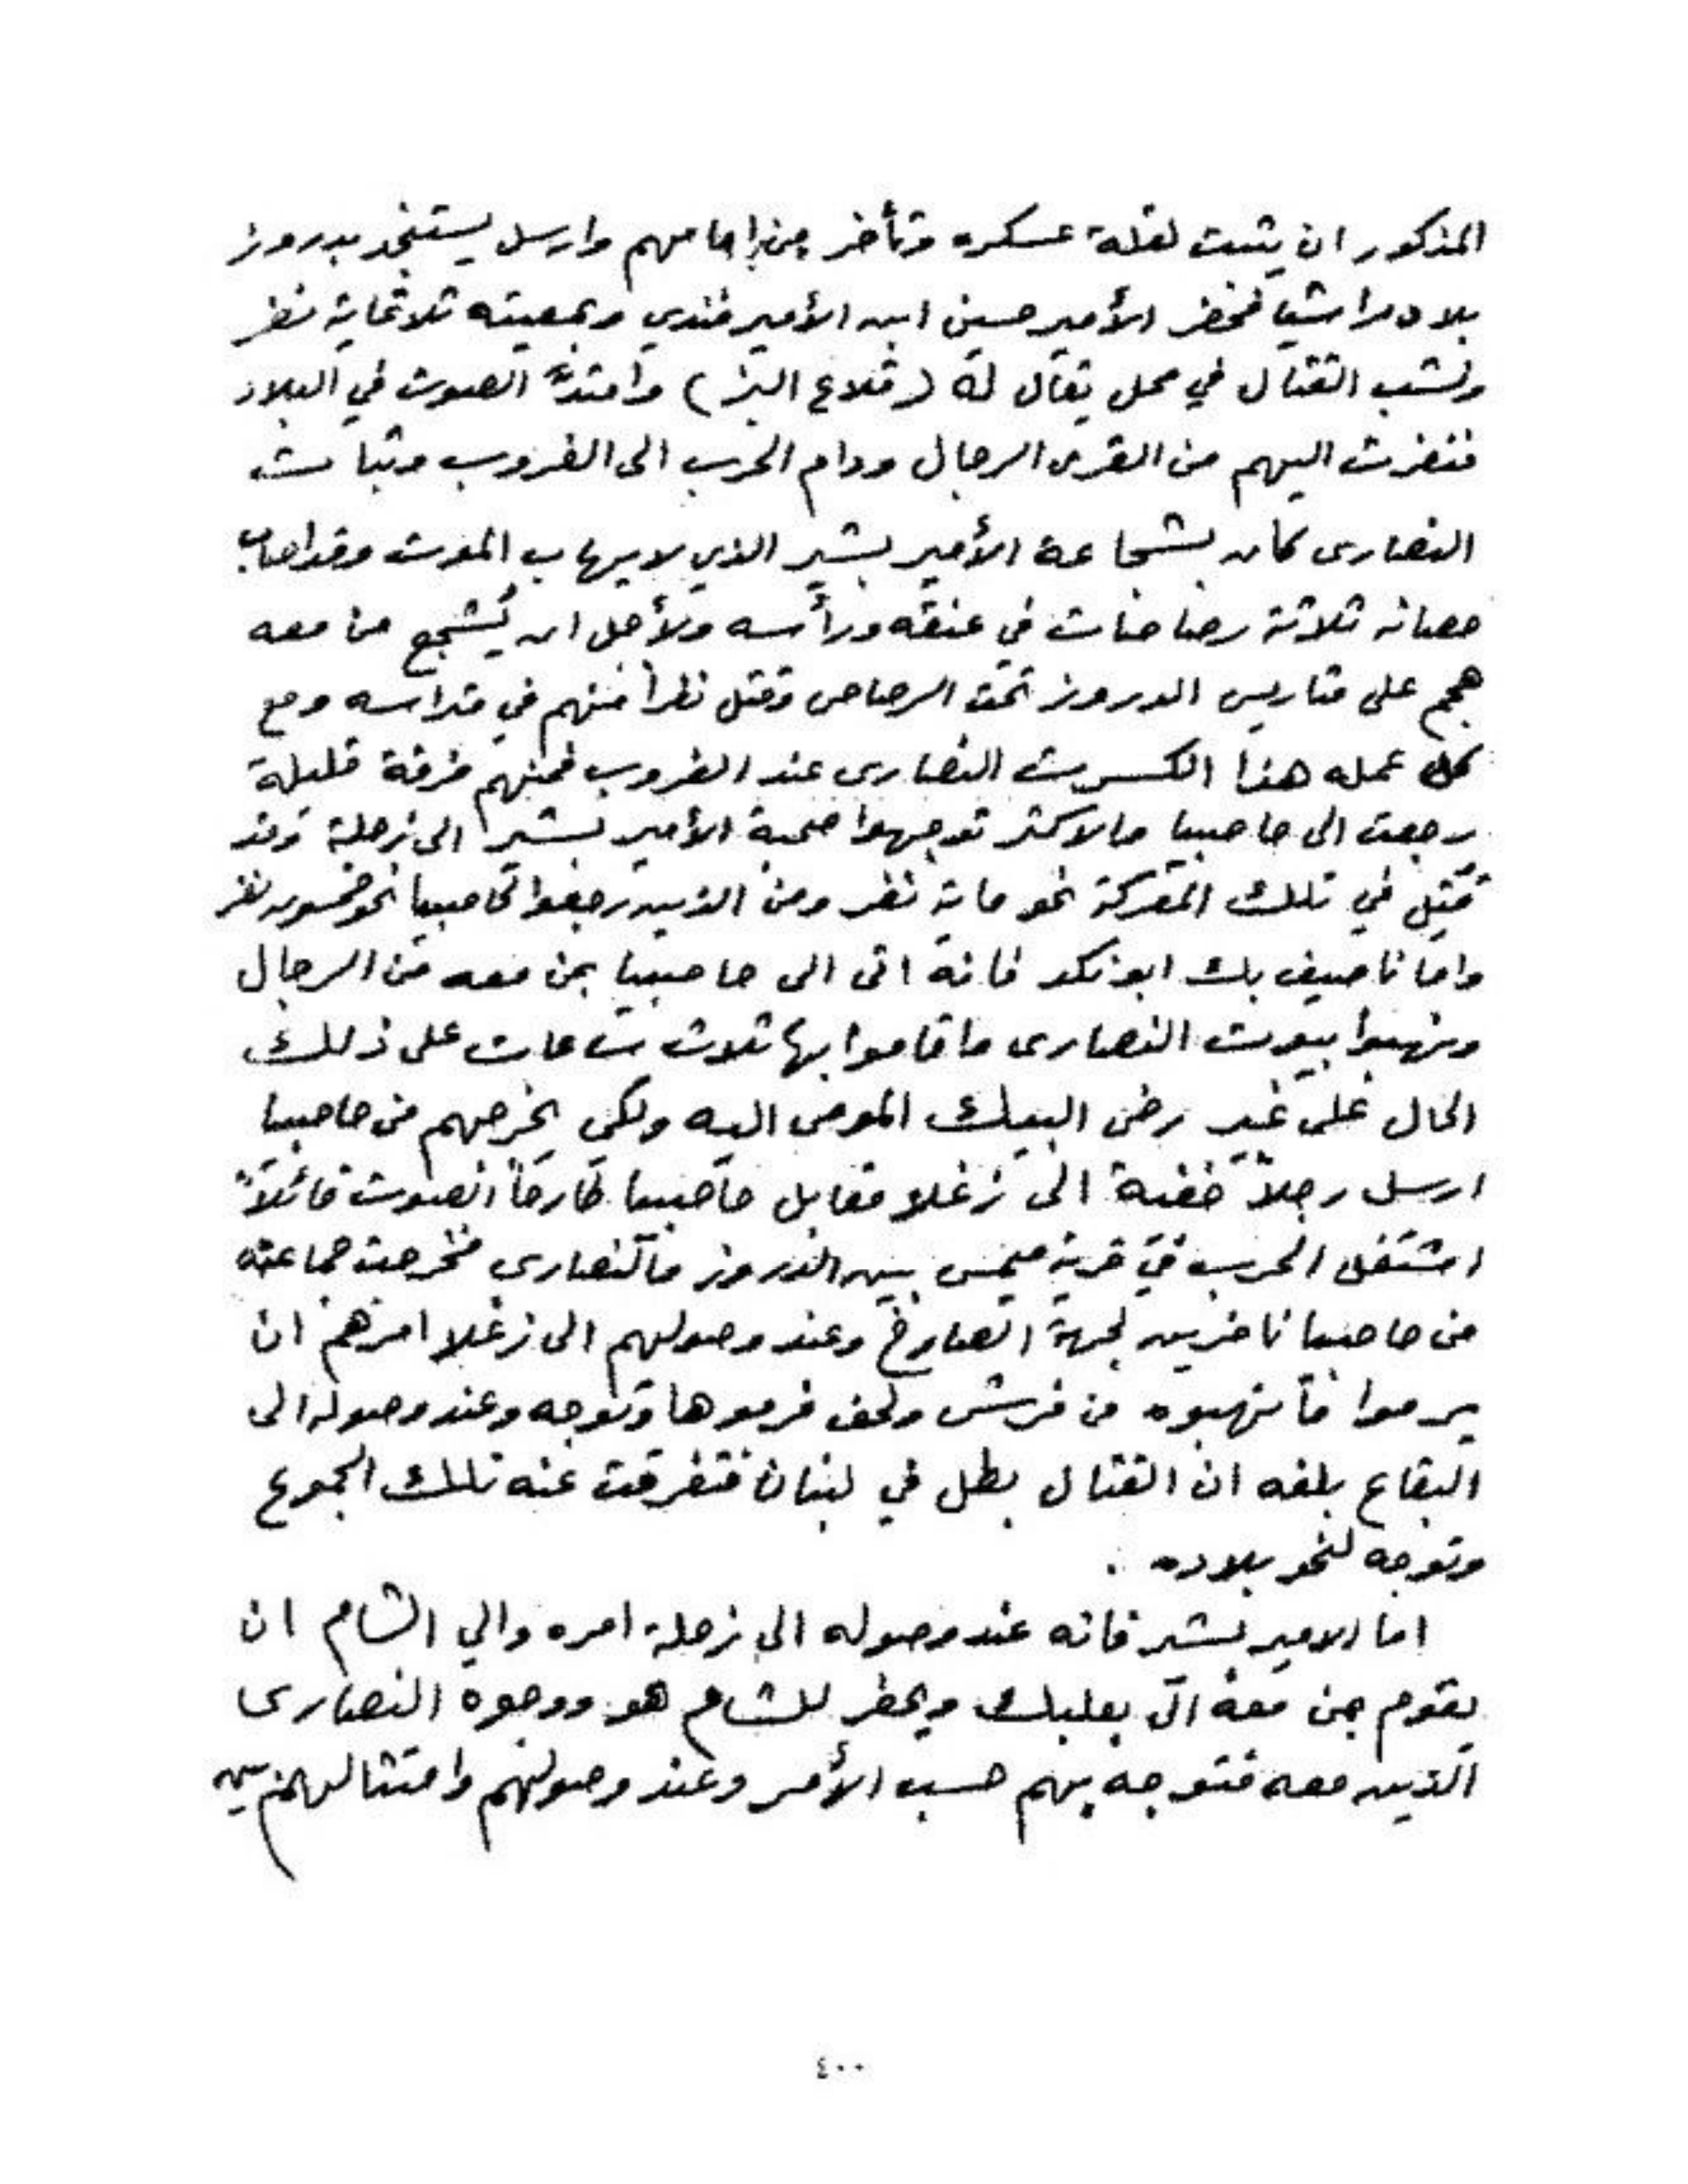 المذكور ان يثبت لقلة عسكره وتأخر من امامهم وارسل يستنجد بدروز
بلاد راشيا فحضر الأمير حسين ابن الأمير فندي وبمعيته ثلاثماية نفر
ونشب القتال في محل يقال له (قلاع البز) وامتدّ الصوت في البلاد
فنفرت اليهم من القرى الرجال ودام الحرب الى الغروب وثبات
النصارى كان بشجاعة الأمير بشير الذي لا يهاب الموت وقد اصاب
حصانه ثلاثة رصاصات في عنقه ورأسه ولأجل ان يُشجع من معه
هجم على متاريس الدروز تحت الرصاص وقتل نفراً منهم في متراسه ومع
كل عمله هذا انكسرت النصارى عند الغروب فمنهم فرقة قليلة
رجعت الى حاصبيا والاكثر توجهوا صحبة الأمير بشير الى زحلة وقد
قُتِل في تلك المعركة نحو ماية نفر ومن الذين رجعوا لحاصبيا نحو خمسون نفر
واما ناصيف بك ابو نكد فانه اتى الى حاصبيا بمن معه من الرجال
ونهبوا بيوت النصارى واقاموا بها ثلاث ساعات على ذلك
الحال على غير رضى البيك المومى اليه ولكي يخرجهم من حاصبيا
ارسل رجلاً خفية الى زغلا مقابل حاصبيا صارخاً الصوت قائلاً
اشتغل الحرب في قرية ميمس بين الدروز والنصارى فخرجت جماعته
من حاصبيا نافرين لجهة الصارخ وعند وصولهم الى زغلا امرهم ان
يرموا ما نهبوه من فرش ولحف فرموها وتوجه وعند وصوله الى
البقاع بلغه ان القتال بطل في لبنان فتفرقت عنه تلك الجموع
وتوجه لنحو بلاده .
اما الامير بشير فانه عند وصوله الى زحلة امره والي الشام ان
يقوم بمن معه الى بعلبك ويحضر للشام هو ووجوه النصارى
الذين معه فتوجه بهم حسب الأمر وعند وصولهم وامتثالهم بين
٤٠٠